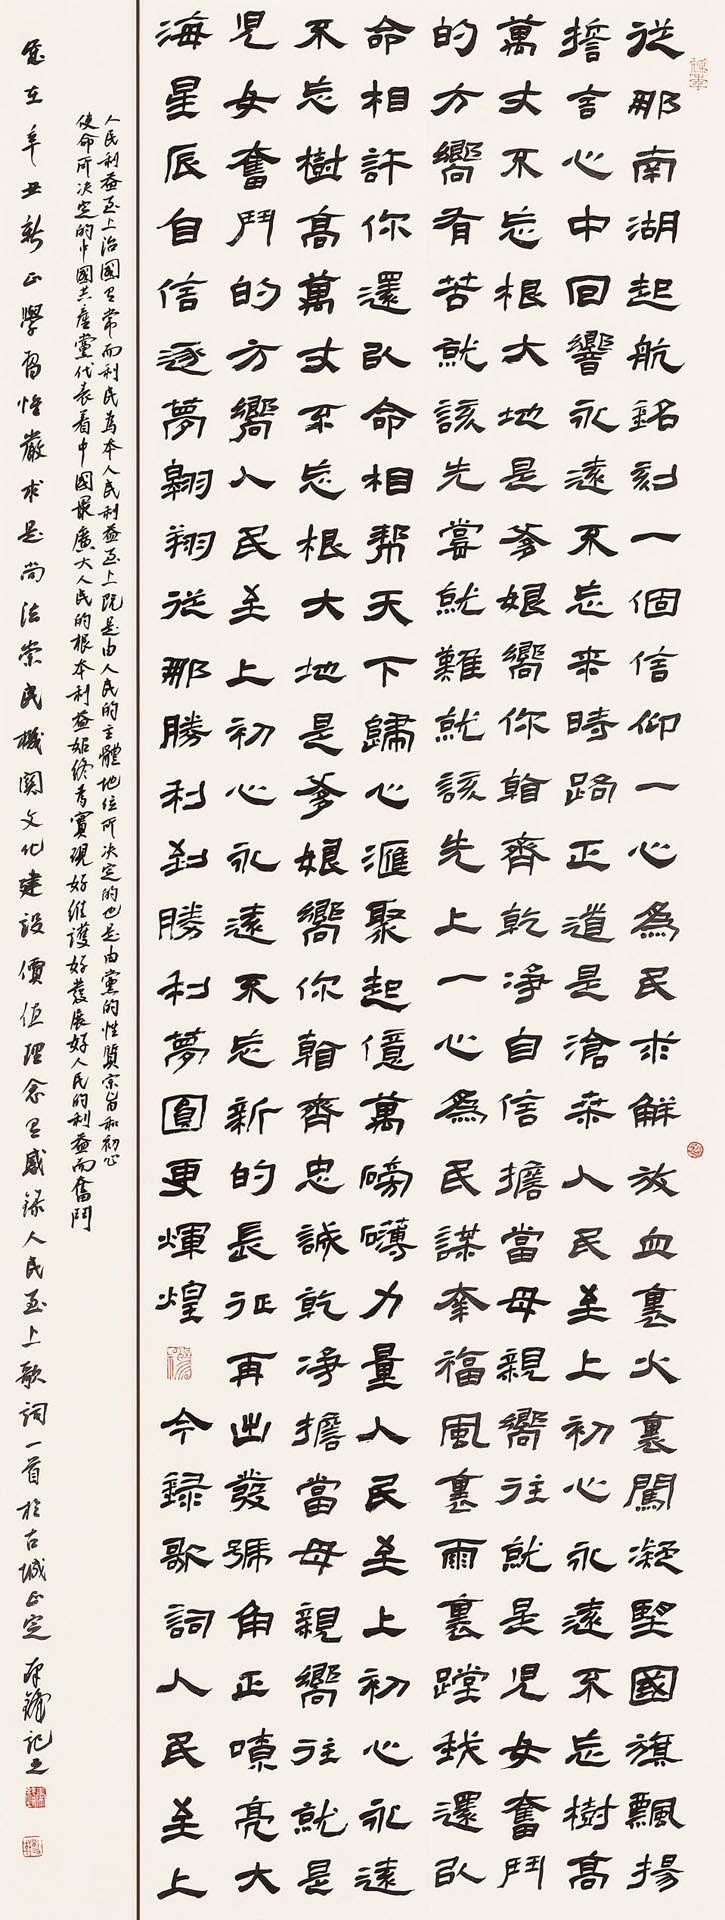 從那南湖起航銘刻一個信仰一心為民求解放血裏火裏闖凝朢國旗飄揚
誓言心中回響永遠不忘來時路正道是滄桑人民至上初心永遠不忘樹高
萬丈不忘根大地是爹娘嚮你看齊乾净自信擔當母親嚮往就是兒女奮鬥
的方嚮有苦就該先嘗就難就該先上一心為民謀幸福風裏雨裏蹚我還以
命相許你還以命相幫天下歸心匯聚起億萬磅礴力量人民至上初心永遠
不忘樹高萬丈不忘根大地是爹娘嚮你看齊忠誠乾净擔當母親嚮往就是
兒女奮鬥的方嚮人民至上初心永遠不忘新的長征再出發號角正嘹亮大
海星辰自信逐夢翱翔從那勝利到勝利夢圓更輝煌今録歌詞人民至上
人民利益至上治國有常而利民為本人民利益至上既是由人民的主體地位所决定的也是由黨的性質宗旨和初心
使命所决定的中國共產黨代表着中國最廣大人民的根本利益始終為實現好維護好發展好人民的利益而奮鬥
歲在辛丑新正學習惟嚴求是尚法崇民機關文化建設價值理念有感録人民至上歌詞一首於古城正定記之